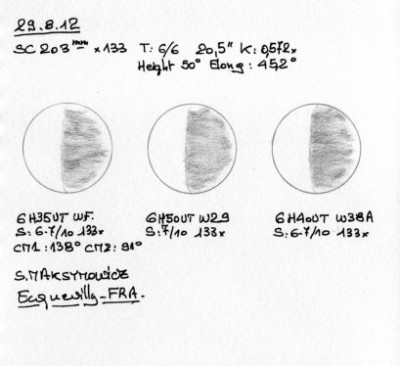 29.8.12
SC 203mm x133 T: 6/6 20,5" K: 0,572x
Height 50° Elong: 45,2°
6H35UT WF. 6H50UT W29 6H40UT W38A
S: 6-7/10 133x S: 7/10 133x S: 6-7/10 133x
CM1: 138° CM2: 91°
S. MAKSYMOWICZ
Ecquevilly-FRA.